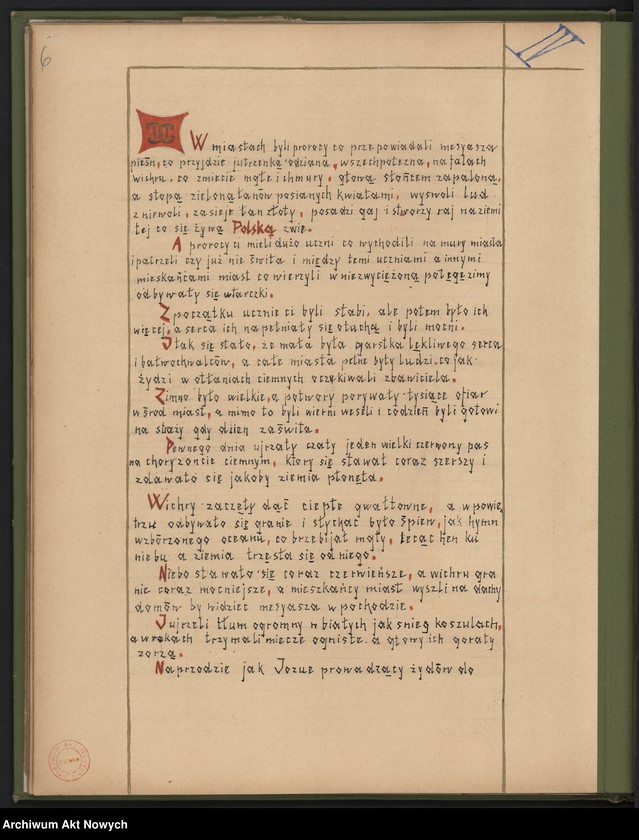 6
IV
W miastach byli prorocy co przepowiadali mesyasza
pieśń, co przyjdzie jutrzenką odziana, wszechpotężna, na falach
wichru, co zmiecie mgłę i chmury. głową słońcem zapaloną,
a stopą zieloną łanów posianych kwiatami, wyswoli lud
z niewoli, zasieje łan złoty, posadzi gaj i stworzy raj na ziemi
tej co się żywą Polską zwie.
A prorocy ci mieli dużo uczni co wychodzili na mury miasta
i patrzeli czy już nie świta i między temi uczniami a innymi
mieszkańcami miast co wierzyli w niezwyciężoną potęgę zimy
odbywały się utarczki.
Z początku ucznie ci byli słabi, ale potem było ich
więcej, a serca ich napełniały się otuchą i byli mocni.
I tak się stało, że mała była garstka lękliwego serca
i bałwochwalców, a całe miasta pełne były ludzi, co jak
żydzi w otłaniach ciemnych oczekiwali zbawiciela.
Zimno było wielkie, a potwory porywały tysiące ofiar
wśród miast, a mimo to byli wierni weseli i codzień byli gotowi
na straży gdy dzień zaświta.
Pewnego dnia ujrzały czaty jeden wielki czerwony pas
na choryzoncie ciemnym, który się stawał coraz szerszy i
zdawało się jakoby ziemia płonęła.
Wichry zaczęły dąć ciepłe gwałtowne, a w powie,
trzu odbywało się granie i słychać było śpiew, jak hymn
wzburzonego oceanu, co brzebijał mgły, lecąc hen ku
niebu a ziemia trzęsła się od niego.
Niebo stawało się coraz czerwieńsze, a wichru gra
nie coraz mocniejsze, a mieszkańcy miast wyszli na dachy
domów by widzieć mesyasza w pochodzie.
I ujrzeli tłum ogromny w białych jak śnieg koszulach,
a w rękach trzymali miecze ogniste a głowy ich gorały
zorzą.
Naprzodzie jak Jozue prowadzący żydów do
Archiwum Akt Nowych